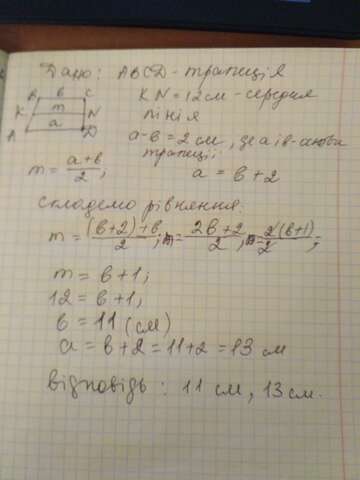 Дано: ABCD - трапеція
KN = 12 см - середня
лінія
a-b = 2 см, де a i b - основи
трапеції
B b C
K m N
a
A D
m = (a+b)/2;
a = b + 2
Складемо рівняння:
m = ((b+2)+b)/2; m = (2b+2)/2; m = 2(b+1)/2;
m = b+1;
12 = b+1;
b = 11 (см)
a = b+2 = 11+2 = 13 см
Відповідь: 11 см, 13 см.